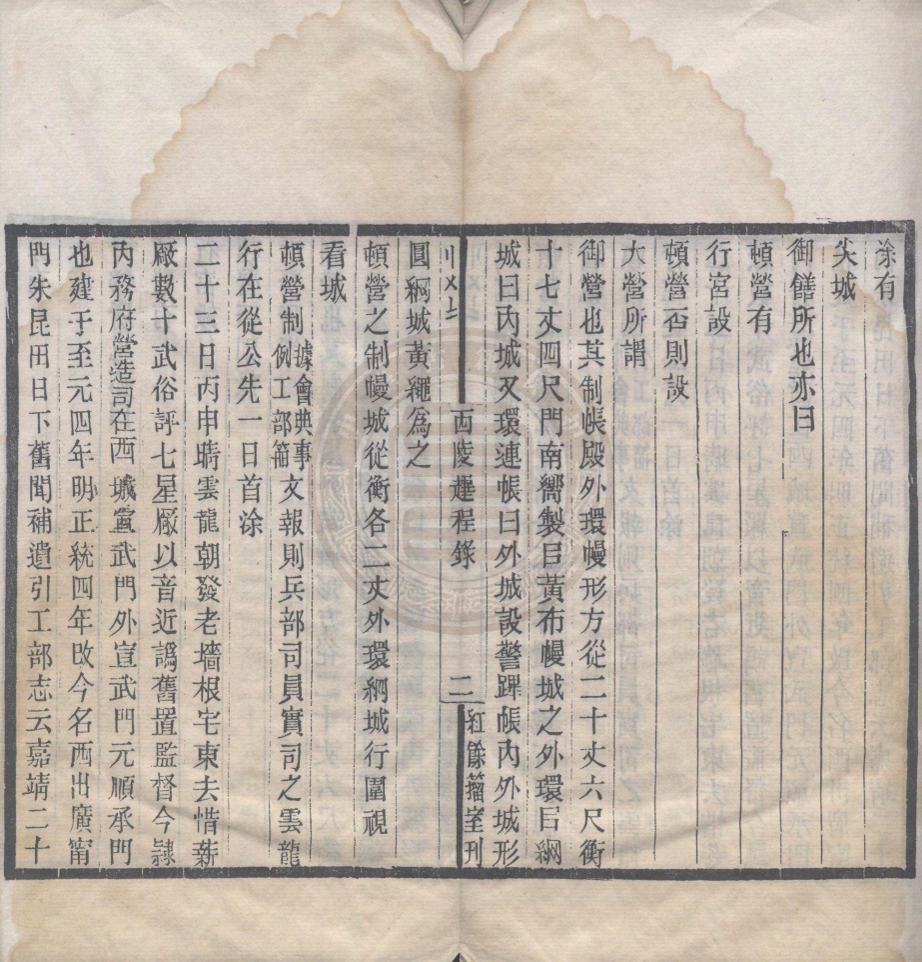 涂有
尖城
御饍所也亦曰
頓營有
行宮設
頓營否則設
大營所謂
御營也其制帳殿外環幔形方從二十丈六尺衡
十七丈四尺門南嚮製㠯黃布幔城之外環㠯網
城曰內城又環連帳曰外城設警蹕帳內外城形
西陵趕程錄
二
紅餘籀室刊
圓網城黃繩爲之
頓營之制幔城從衡各二丈外環網城行圍視
看城
頓營制據會典事例工部篇文報則兵部司員實司之雲龍
行在從公先一日首涂
二十三日丙申晴雲龍朝發老墻根宅東去惜薪
厰數十武俗評七星厰以音近譌舊置監督今隷
內務府營造司在西城宣武門外宣武門元順承門
也建于至元四年明正統四年改今名西出廣甯
門朱昆田日下舊聞補遺引工部志云嘉靖二十